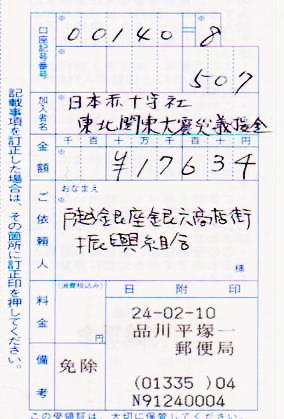 口座記号番号
00140 8
507
加入者名
日本赤十字社
東北関東大震災義援金
金額
千百十万千百十円
¥17634
ご依頼人
おなまえ
戸越銀座銀六商店街
振興組合
様
料金
(消費税込み)
円
備考
免除
日附印
24-02-10
品川平塚一
郵便局
(01335 )04
N91240004
記載事項を訂正した場合は、その箇所に訂正印を押してください。
この受領証は、大切に保管してください。